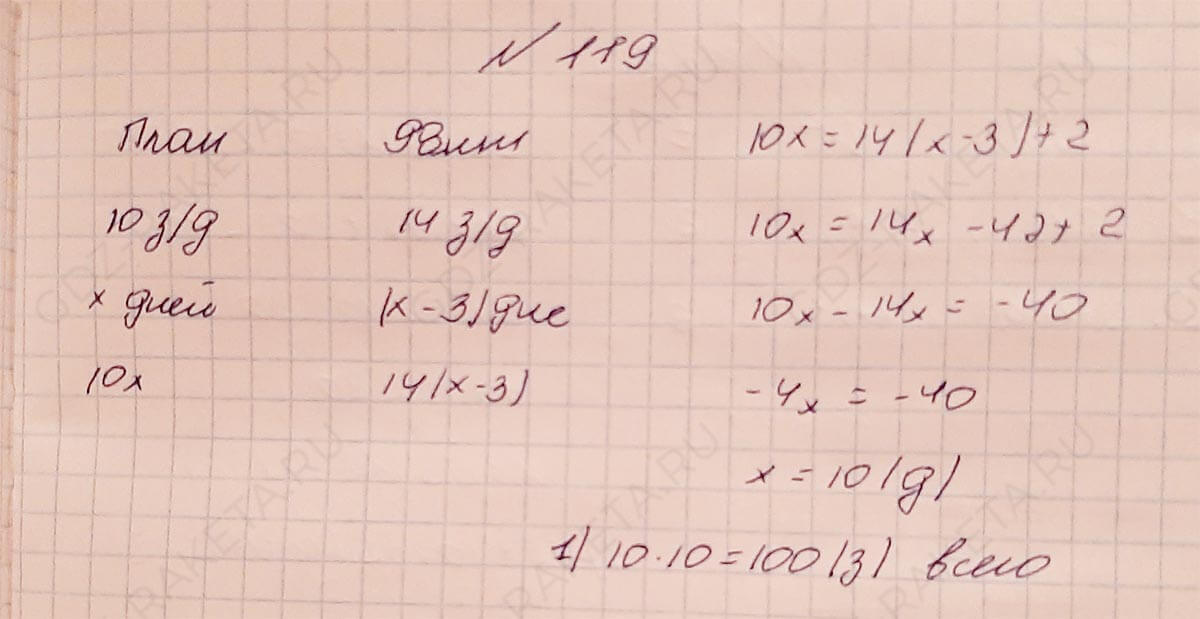 № 119
План Фвлит 10x = 14(x - 3) + 2
10 з/д 14 з/д 10x = 14x - 42 + 2
x дней (x - 3) дне 10x - 14x = -40
10x 14(x - 3) -4x = -40
x = 10 (д)
1) 10·10 = 100 (з) всего
GDZ-RAKETA.RU